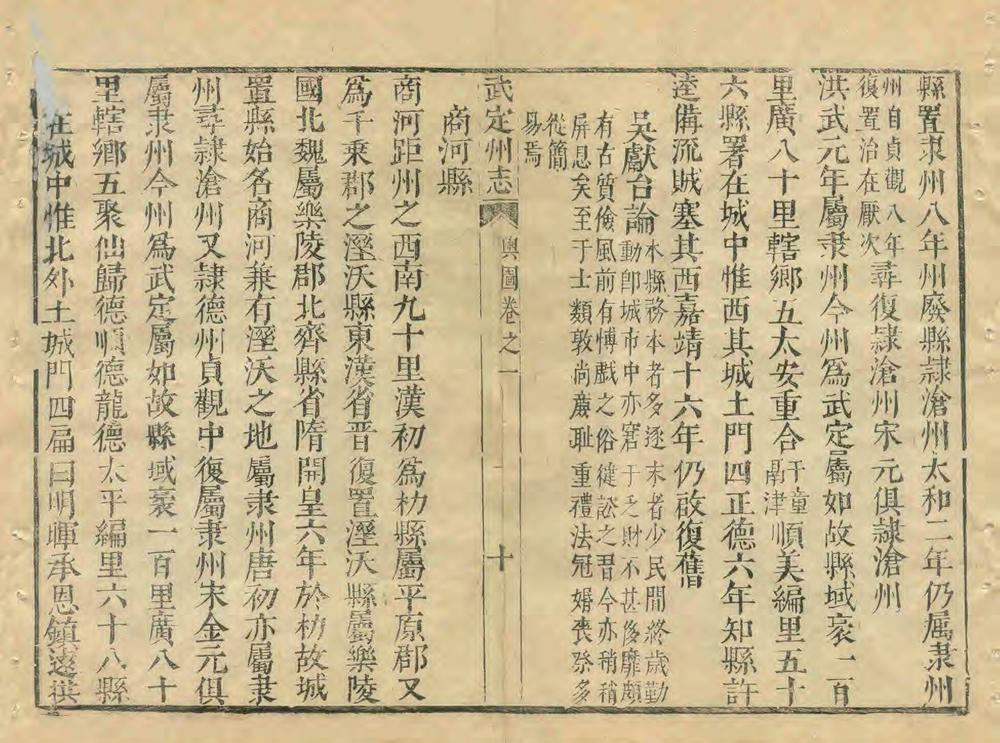 縣置隶州八年州廢縣隷滄州太和二年仍属隶州
州自貞觀八年
復置治在厭次
尋復隷滄州宋元俱隷滄州
洪武元年屬隶州今州爲武定屬如故縣域袤一百
里廣八十里轄鄉五太安重合
干童
鬲津
順美編里五十
六縣署在城中惟西其城土門四正德六年知縣許
逵備流賊塞其西嘉靖十六年仍啟復舊
吳獻台論
本縣務本者多逐末者少民間終歲勤
動卽城市中亦窘于乏財不甚侈靡頗
有古質儉風前有愽戲之俗健訟之習今亦稍稍
屏息矣至于士類敦尚廉耻重禮法冠婚喪祭多
從簡
易焉
武定州志
輿圖卷之一
十
商河縣
商河距州之西南九十里漢初爲朸縣屬平原郡又
爲千乗郡之溼沃縣東漢省晋復置溼沃縣屬樂陵
國北魏屬樂陵郡北齊縣省隋開皇六年於朸故城
置縣始名商河兼有溼沃之地屬隶州唐初亦屬隶
州尋隷滄州又隷德州貞觀中復屬隶州宋金元俱
屬隶州今州爲武定屬如故縣域袤一百里廣八十
里轄鄉五聚仙歸德順德龍德太平編里六十八縣
在城中惟北外土城門四扁曰明暉承恩鎮遠拱